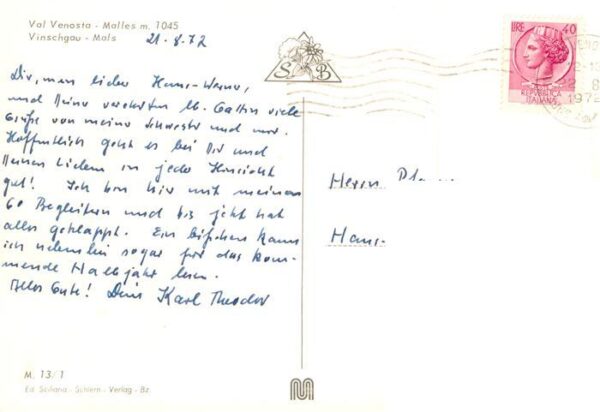 Val Venosta - Malles m. 1045
Vinschgau - Mals
21-8.72
Dir, mein lieber Hans-Werner,
und Deiner verehrten lb. Gattin viele
Grüße von meiner Schwester und mir.
Hoffentlich geht es bei Dir und
Deinen Lieben in jeder Hinsicht
gut! Ich bin hier mit meinen
60 Begleitern und bis jetzt hat
alles geklappt. Ein bißchen kann
ich nebenbei sogar für das kom-
mende Halbjahr lesen.
Alles Gute! Dein Karl Theodor
S B
LIRE 40
REPUBBLICA
ITALIANA
1972
Herrn
Hans-
M. 13/1
Ed. Siciliana - Schlern - Verlag - Bz.